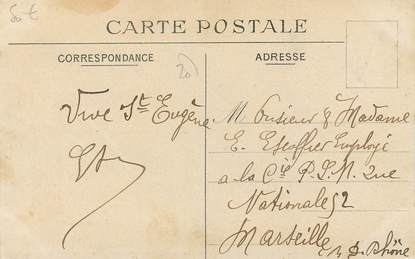 50 €
CARTE POSTALE
CORRESPONDANCE
ADRESSE
20
Vive St Eugène
Monsieur & Madame
E. Escoffier Employé
a la Cie P. L. M. rue
Nationale 52
Marseille
B. d. Rhône